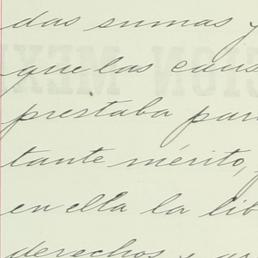 das sumas y
que las caus
prestaba par
tante mérito,
en ella la lib
derechos y